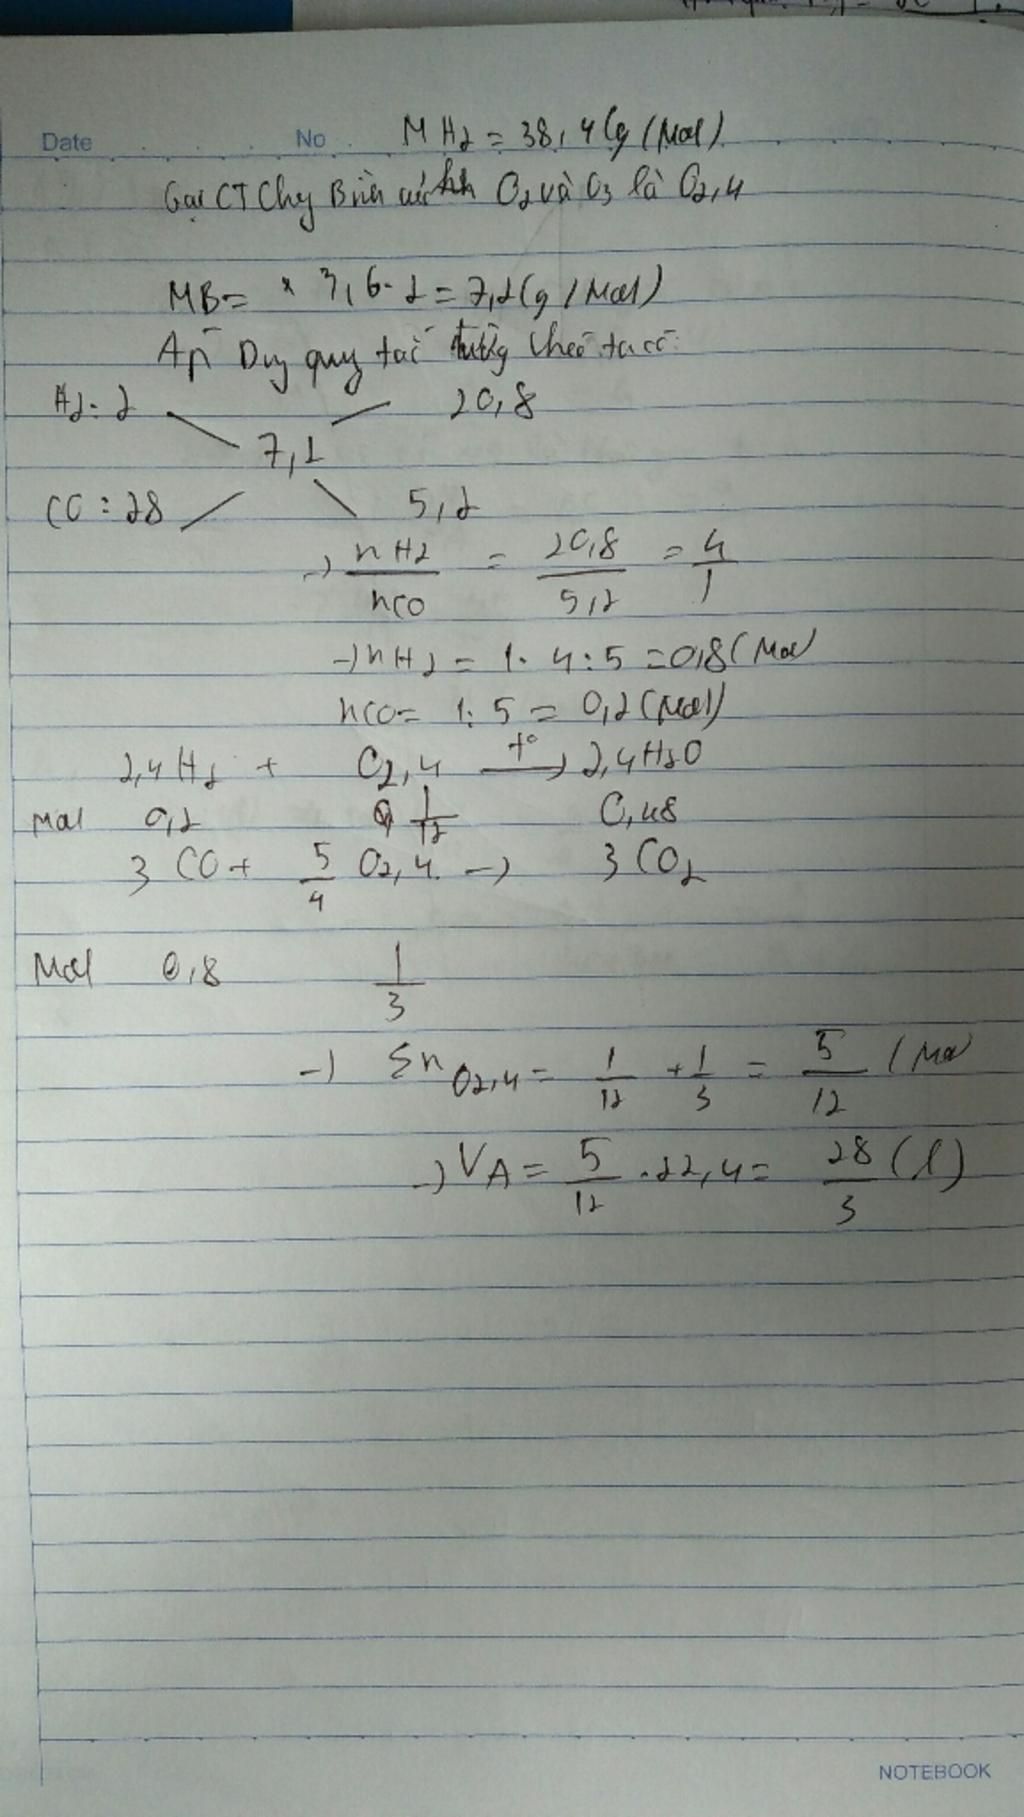 Date No. MH2 = 38,4 (g/Mol)
Gọi CT Chug Bình của hh O2 và O3 là O2,4
MB = 3,6.2 = 7,2 (g/Mol)
Áp Dug quy tắc đường chéo ta có:
H2: 2 20,8
7,2
CO: 28 5,2
→ nH2 / nCO = 20,8 / 5,2 = 4 / 1
→ nH2 = 1.4:5 = 0,8 (Mol
nCO = 1:5 = 0,2 (Mol)
2,4H2 + O2,4 t° → 2,4H2O
Mol 0,2 1/12 0,48
3CO + 5/4 O2,4 → 3CO2
Mol 0,8 1/3
→ Σn O2,4 = 1/12 + 1/3 = 5/12 (Mol
→ VA = 5/12 . 22,4 = 28/3 (l)
NOTEBOOK